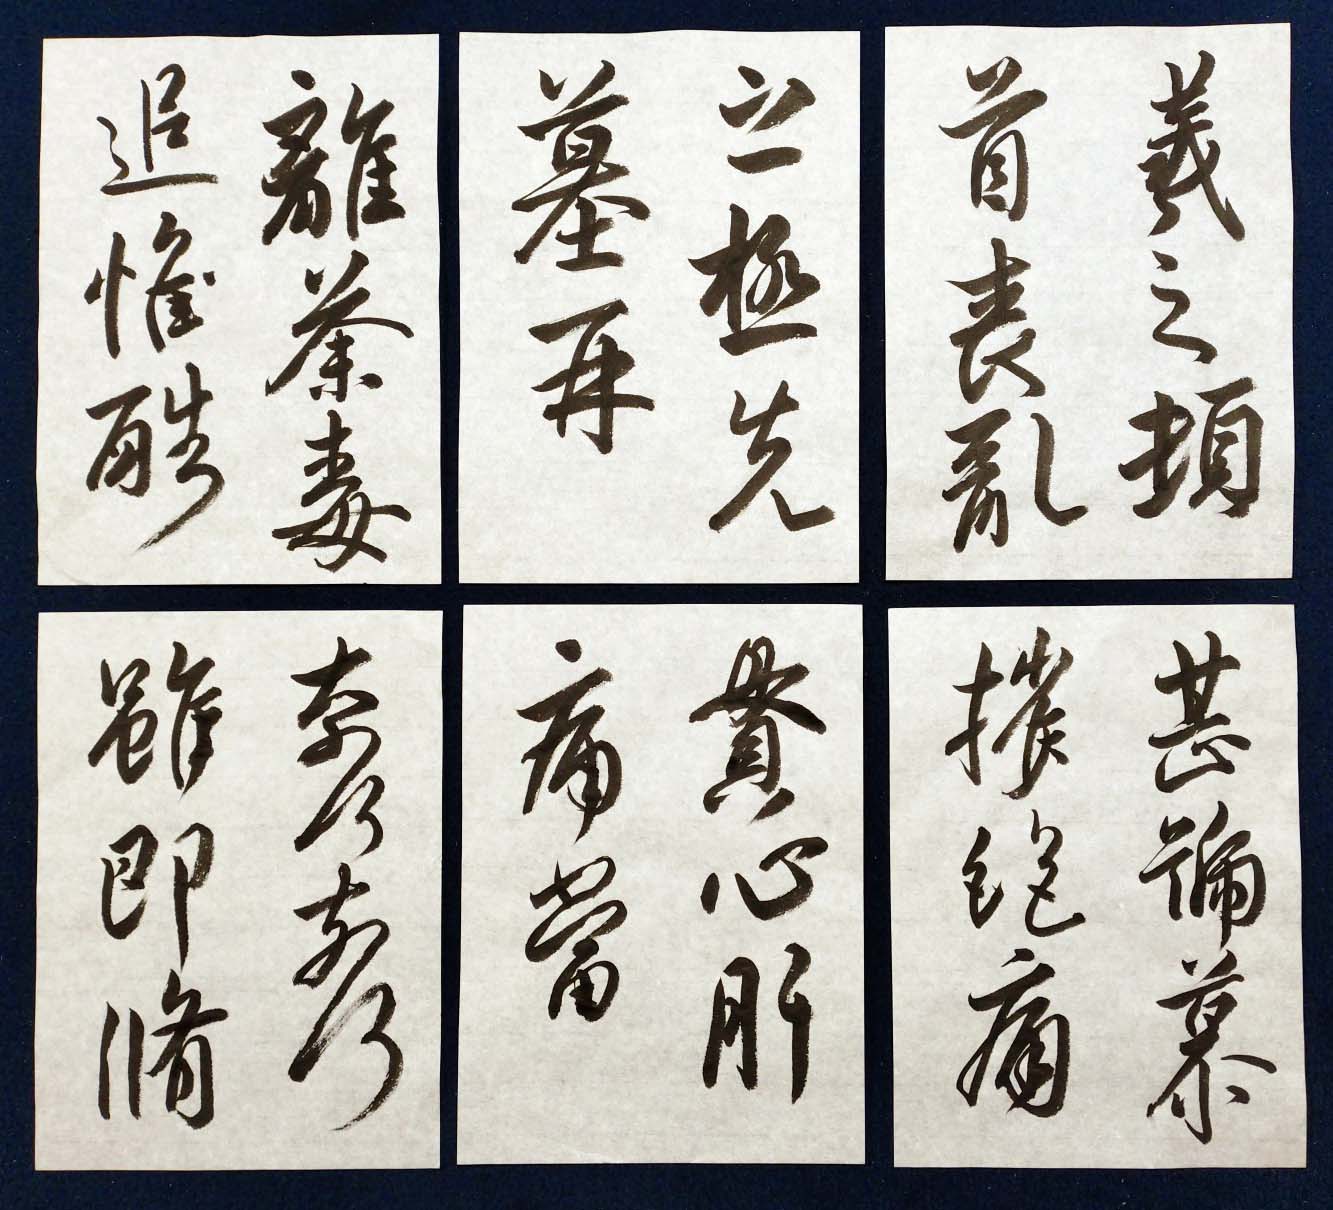 羲之頓
首喪亂
之極先
墓再
離荼毒
追惟酷
甚號慕
摧絕痛
貫心肝
痛當
柰何柰何
雖即脩